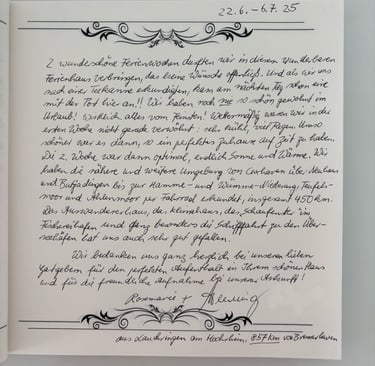 22.6. – 6.7.25
2 wunderschöne Ferienwochen durften wir in diesem wunderbaren
Ferienhaus verbringen, das keine Wünsche offenließ. Und als wir uns
nach einer Tortenkarte erkundigten, kam am nächsten Tag schon eine
mit der Post hier an!! Wir haben noch nie so schön gewohnt im
Urlaub! Wirklich alles vom Feinsten! Wettermäßig waren wir in der
ersten Woche nicht gerade verwöhnt, sehr kühl, viel Regen. Umso
schöner war es dann, so ein perfektes Zuhause auf Zeit zu haben.
Die 2. Woche war dann optimal, endlich Sonne und Wärme. Wir
haben die nähere und weitere Umgebung von Cuxhaven über
und Butjadingen bis zur Hamme- und Wümme-Niederung, Teufels-
moor und Ahlenmoor per Fahrrad erkundet, insgesamt 450 km.
Das Auswandererhaus, das Klimahaus, das Schaufenster im
Fischereihafen und ganz besonders die Schifffahrt zu den Über-
seehäfen hat uns auch sehr gut gefallen.
Wir bedanken uns ganz herzlich bei unseren lieben
Gastgebern für den perfekten Aufenthalt in Ihrem schönen Haus
und für die freundliche Aufnahme bei unserer Ankunft!
Rosemarie +
aus am Hochrhein, 857 km von Bremerhaven